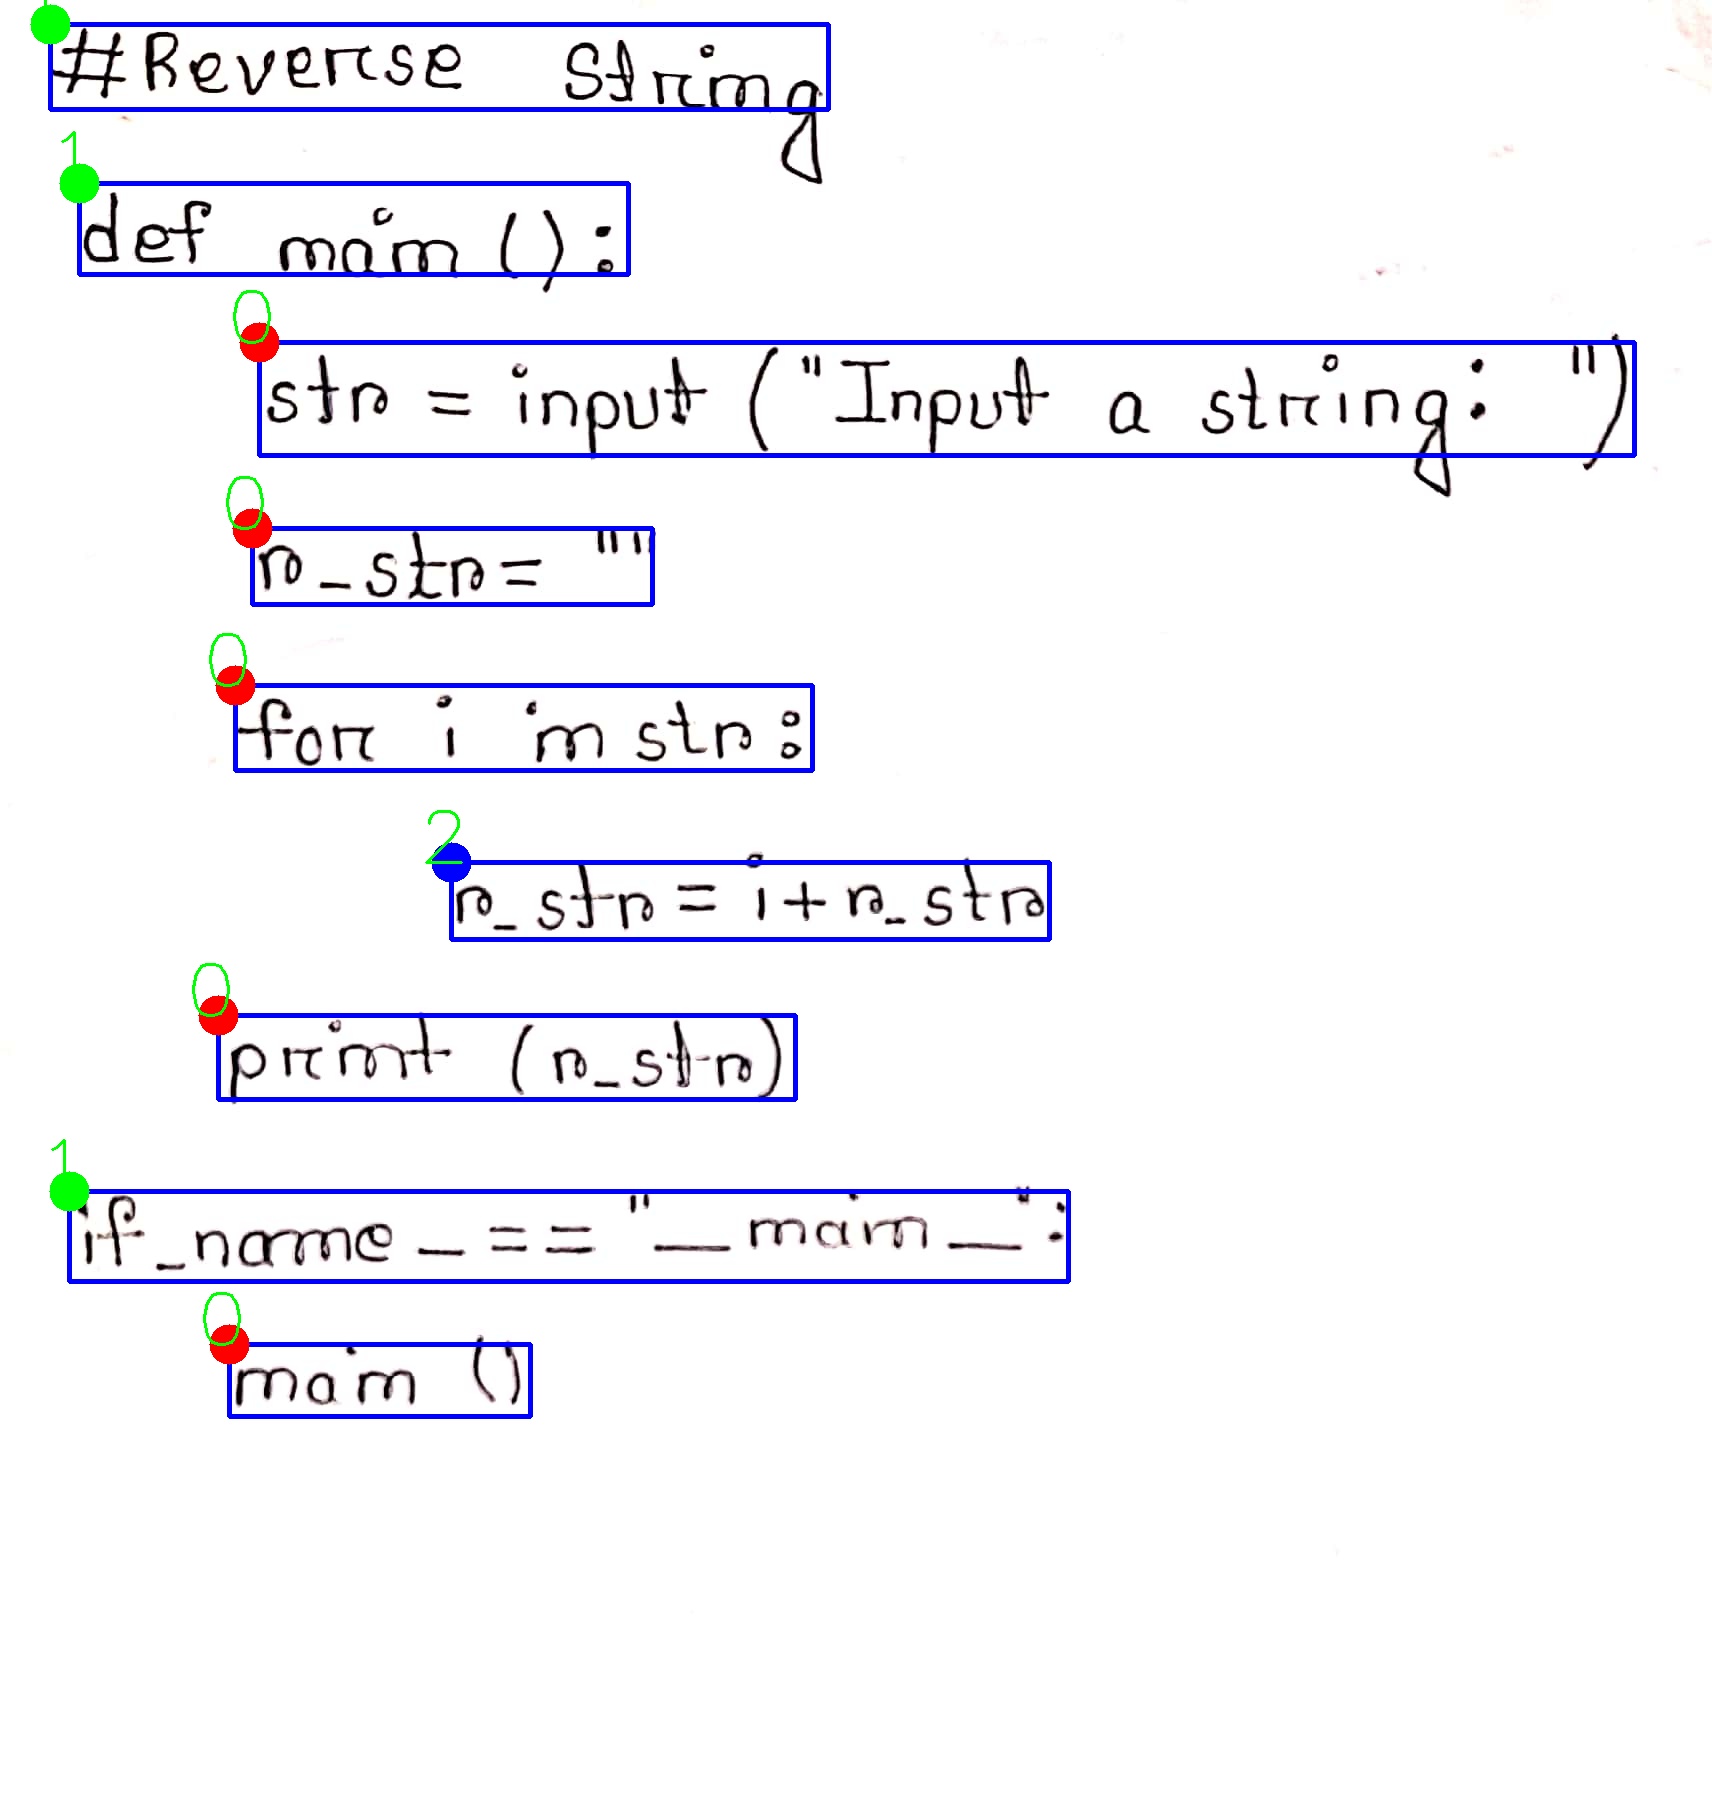 #Reverse String
1
def main ():
0
str = input ("Input a string: ")
0
r_str= ""
0
for i in str:
2
r_str = i+r_str
0
print (r_str)
1
if _name_ == "__main__":
0
main ()